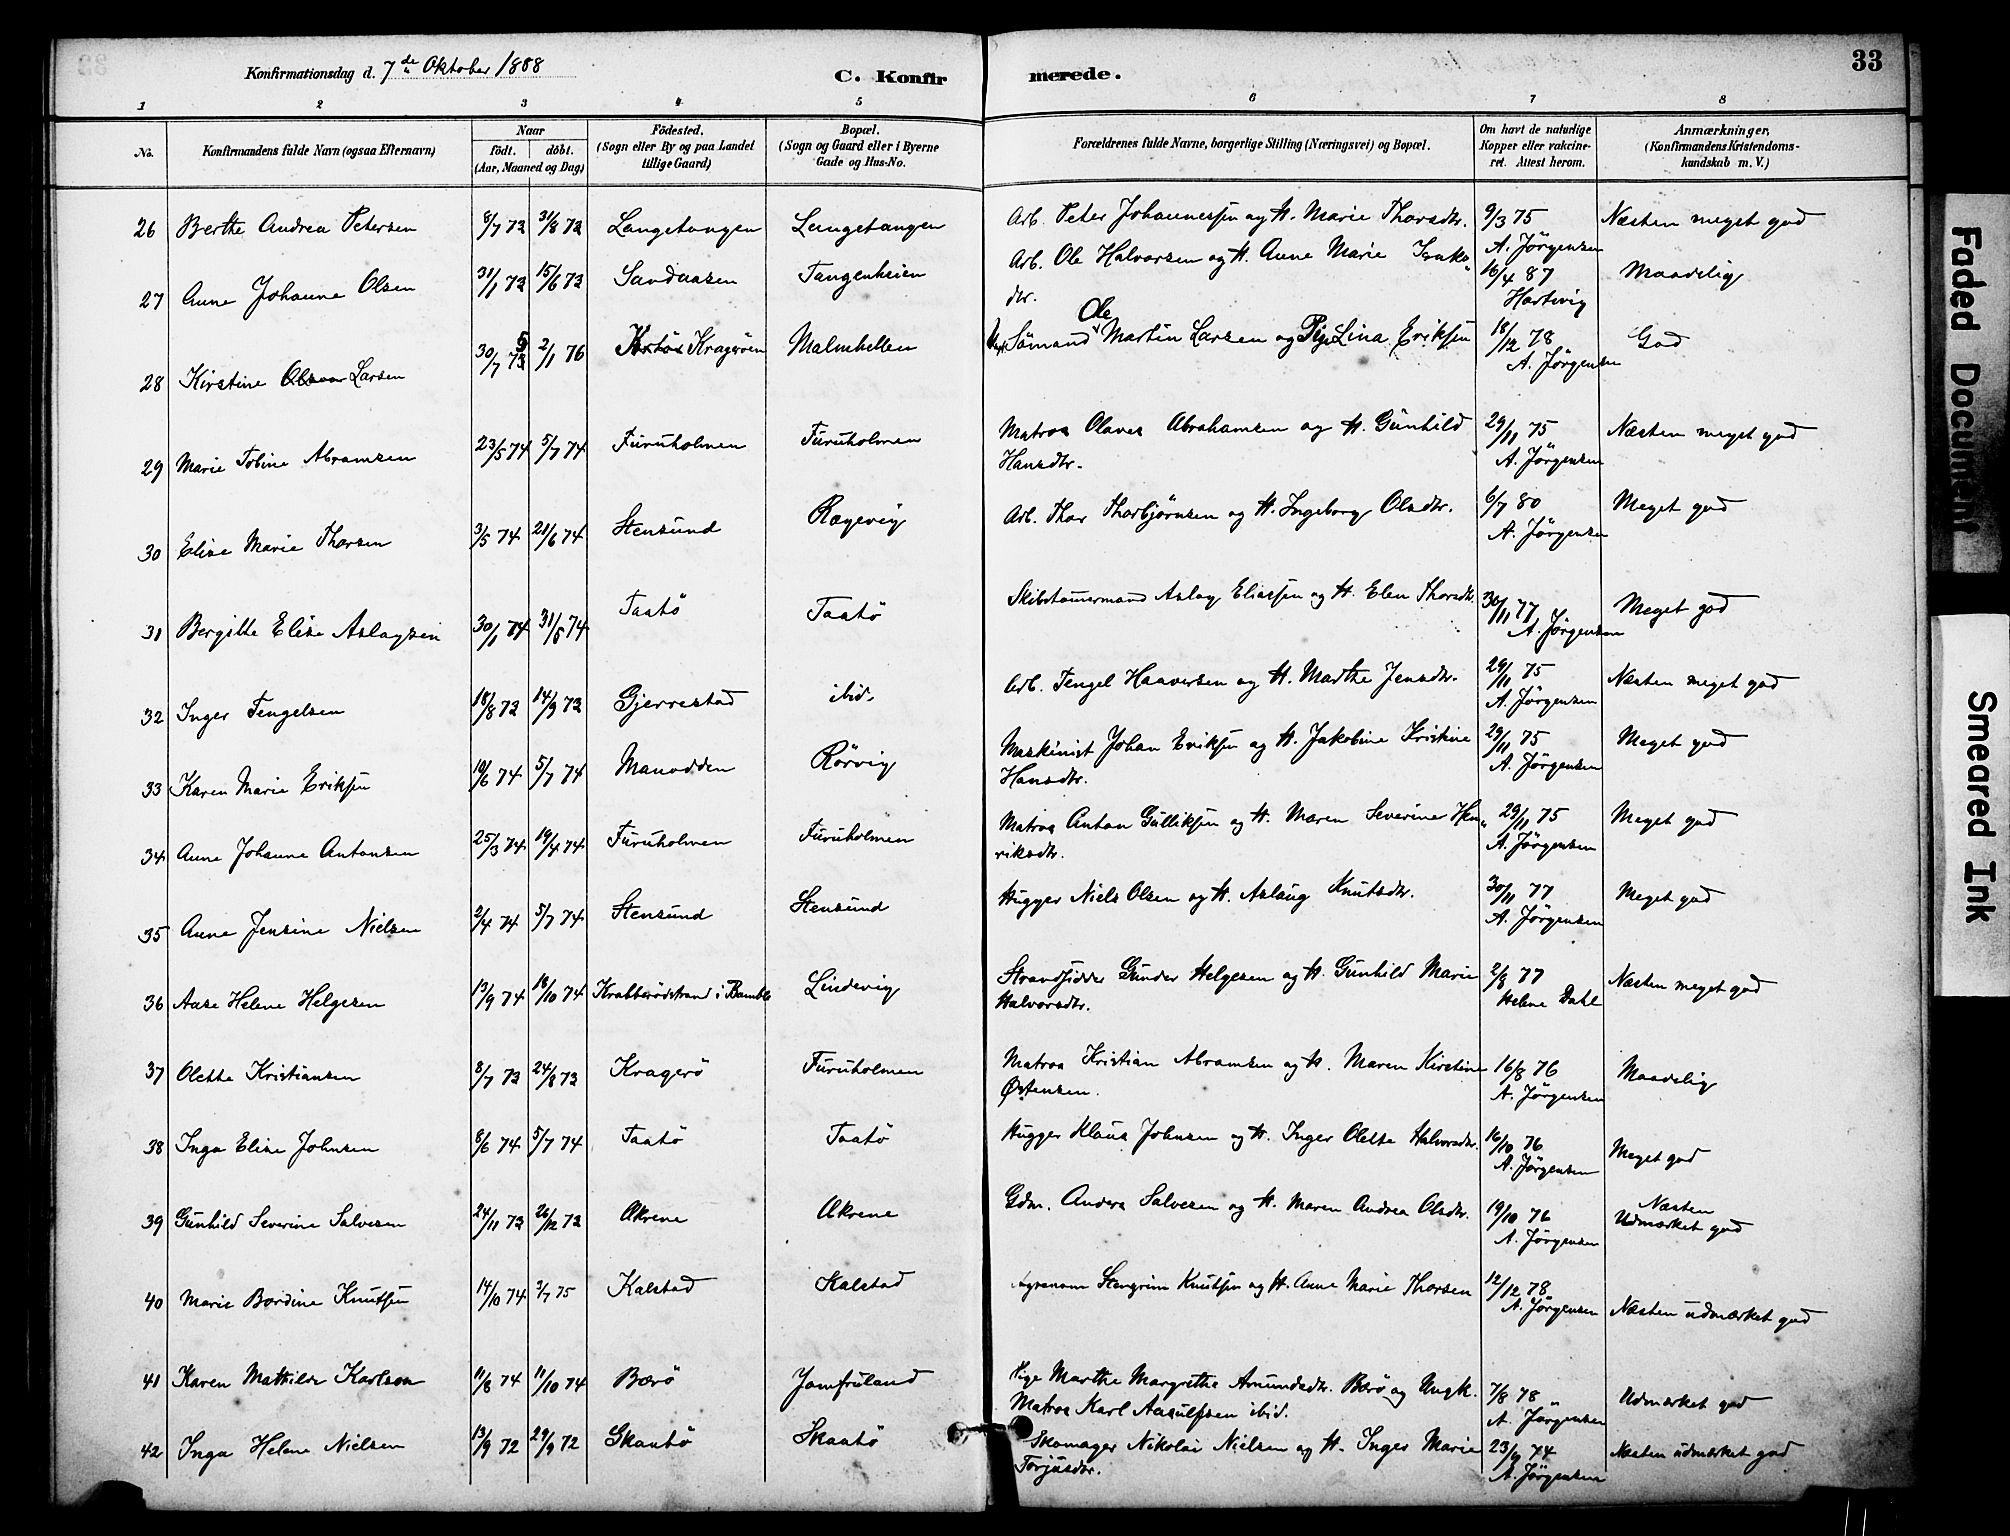 Konfirmationsdag d. 7de Oktober 1888
C. Konfir merede.
33
1 2 3 4 5 6 7 8
No.
Konfirmandens fulde Navn (ogsaa Efternavn)
Naar
födt. döbt.
(Aar, Maaned og Dag)
Födested.
(Sogn eller By og paa Landet
tillige Gaard)
Bopæl.
(Sogn og Gaard eller i Byerne
Gade og Hus-No.
Forældrenes fulde Navne, borgerlige Stilling (Næringsvei) og Bopæl.
Om havt de naturlige
Kopper eller vakcine-
ret. Attest herom.
Anmærkninger,
(Konfirmandens Kristendoms-
kundskab m. V.)
26 Berthe Andrea Petersen 8/7 73 31/8 73 Langetangen Langetangen Arb. Peter Johannessen og H. Marie Thorsdtr. 9/3 75 Næsten meget god
A. Jörgensen
27 Anne Johanne Olsen 31/1 73 15/6 73 Sandaasen Tangenheien Arb. Ole Halvorsen og H. Anne Marie Isaks-
dtr. 16/4 87 Maadelig
Hartvig
28 Kirstine Larsen 30/7 75 2/1 76 Kragerøen Malmhellen Sömand Ole Martin Larsen og Pige Lina Eriksen 18/12 78 God
A. Jörgensen
29 Marie Tobine Abramsen 23/5 74 5/7 74 Furuholmen Furuholmen Matros Olaves Abrahamsen og H. Gunhild
Hansdtr. 29/11 75 Næsten meget god
A. Jörgensen
30 Elise Marie Thorsen 3/5 74 21/6 74 Stensund Rægevig Arb. Thor Thorbjörnsen og H. Ingeborg Olsdtr. 6/7 80 Meget god
A. Jörgensen
31 Bergitte Elise Aslagsen 30/1 74 31/5 74 Taatö Taatö Skibstömermand Aslag Eliassen og H. Elen Thorsdtr. 30/11 77 Meget god
A. Jörgensen
32 Inger Tengelsen 18/8 73 14/9 73 Gjerrestad ibid. Arb. Tengel Haaversen og H. Marthe Jensdtr. 29/11 75 Næsten meget god
A. Jörgensen
33 Karen Marie Eriksen 10/6 74 5/7 74 Manodden Rörvig Maskinist Johan Eriksen og H. Jakobine Kristine
Hansdtr. 29/11 75 Meget god
A. Jörgensen
34 Anne Johanne Antonsen 25/3 74 19/4 74 Furuholmen Furuholmen Matros Anton Gulliksen og H. Maren Severine Hen-
riksdtr. 29/11 75 Meget god
A. Jörgensen
35 Anne Jensine Nielsen 2/4 74 5/7 74 Stensund Stensund Hugger Niels Olsen og H. Aslaug Knutsdtr. 30/11 77 Meget god
A. Jörgensen
36 Aase Helene Helgesen 13/9 74 18/10 74 Krabberödstrand i Bamble Lindevig Strandsidder Gunder Helgesen og H. Gunhild Marie
Halvorsdtr. 2/8 77 Næsten meget god
Helene Dahl
37 Olette Kristiansen 8/7 73 24/8 73 Kragerö Furuholmen Matros Kristian Abramsen og H. Maren Kirstine
Østensen. 16/8 76 Maadelig
A. Jörgensen
38 Inga Elise Johnsen 8/6 74 5/7 74 Taatö Taatö Hugger Klaus Johnsen og H. Inger Olette Halvorsdtr. 16/10 76 Meget god
A. Jörgensen
39 Gunhild Severine Salvesen 24/11 73 26/12 73 Akrene Akrene Gdm. Anders Salvesen og H. Maren Andrea Olsdtr. 19/10 76 Næsten
Udmærket god
A. Jörgensen
40 Marie Bordine Knutsen 14/10 74 3/7 75 Kalstad Kalstad Stengrim Knutsen og H. Anne Marie Thorsen 12/12 78
A. Jörgensen Næsten udmærket god
41 Karen Mathilde Karlson 11/8 74 11/10 74 Bærö Jomfruland Pige Marthe Margrethe Amundsdtr. Bærö og Ungk.
Matros Karl Aasulfsen ibid. 7/8 78 Udmærket god
A. Jörgensen
42 Inga Helene Nielsen 13/9 72 29/9 72 Skaatö Skaatö Skomager Nikolai Nielsen og H. Inger Marie
Torjusdtr. 23/9 74 Næsten udmærket god
A. Jörgensen
Faded Document
Smeared Ink